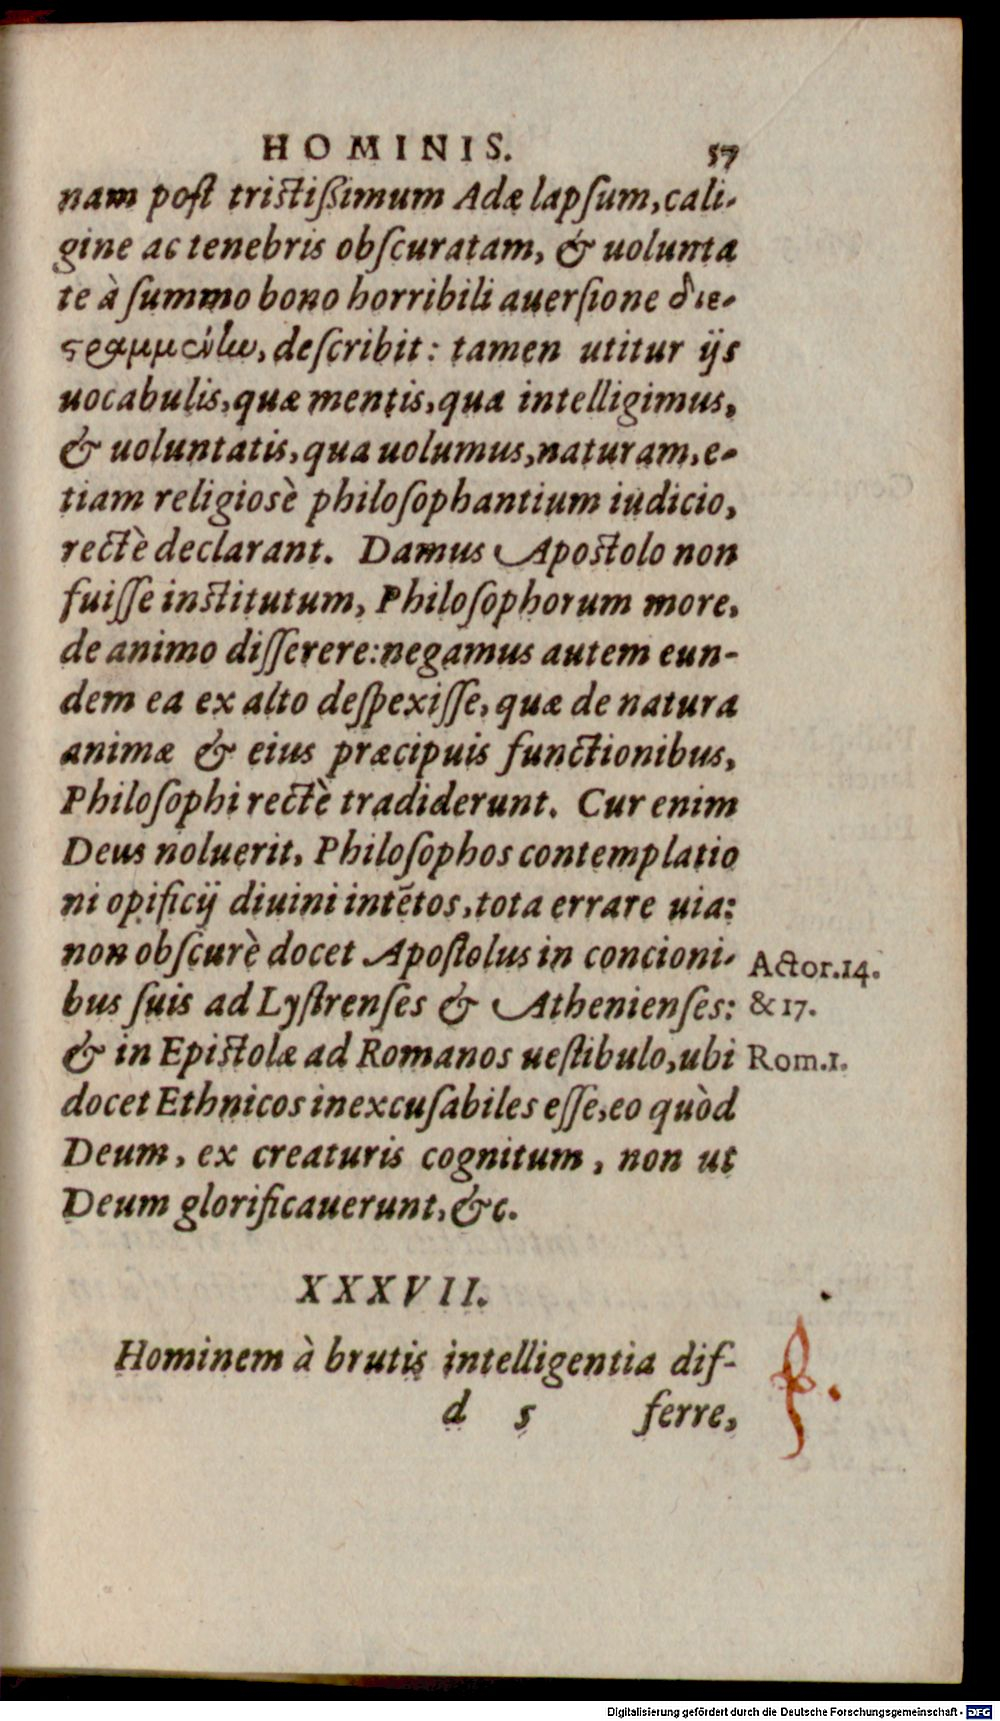 HOMINIS. 57
nam poſt triſtiſsimum Adæ lapſum, cali-
gine ac tenebris obſcuratam, & uolunta
te à ſummo bono horribili auerſione διε-
ϛραμμένlω, deſcribit: tamen utitur ijs
uocabulis, quæ mentis, qua intelligimus,
& uoluntatis, qua uolumus, naturam, e-
tiam religiosè philoſophantium iudicio,
rectè declarant. Damus Apoſtolo non
fuiſſe inſtitutum, Philoſophorum more,
de animo diſſerere: negamus autem eun-
dem ea ex alto deſpexiſſe, quæ de natura
animæ & eius præcipuis functionibus,
Philoſophi rectè tradiderunt. Cur enim
Deus noluerit, Philoſophos contemplatio
ni opificij diuini intētos, tota errare uia:
non obſcurè docet Apoſtolus in concioni- Actor.14.
bus ſuis ad Lyſtrenſes & Athenienſes: & 17.
& in Epiſtolæ ad Romanos ueſtibulo, ubi Rom.1.
docet Ethnicos inexcuſabiles eſſe, eo quòd
Deum, ex creaturis cognitum, non ut
Deum glorificauerunt, &c.
XXXVII.
Hominem à brutis intelligentia diſ-
d 5 ferre,
Digitalisierung gefördert durch die Deutsche Forschungsgemeinschaft - DFG